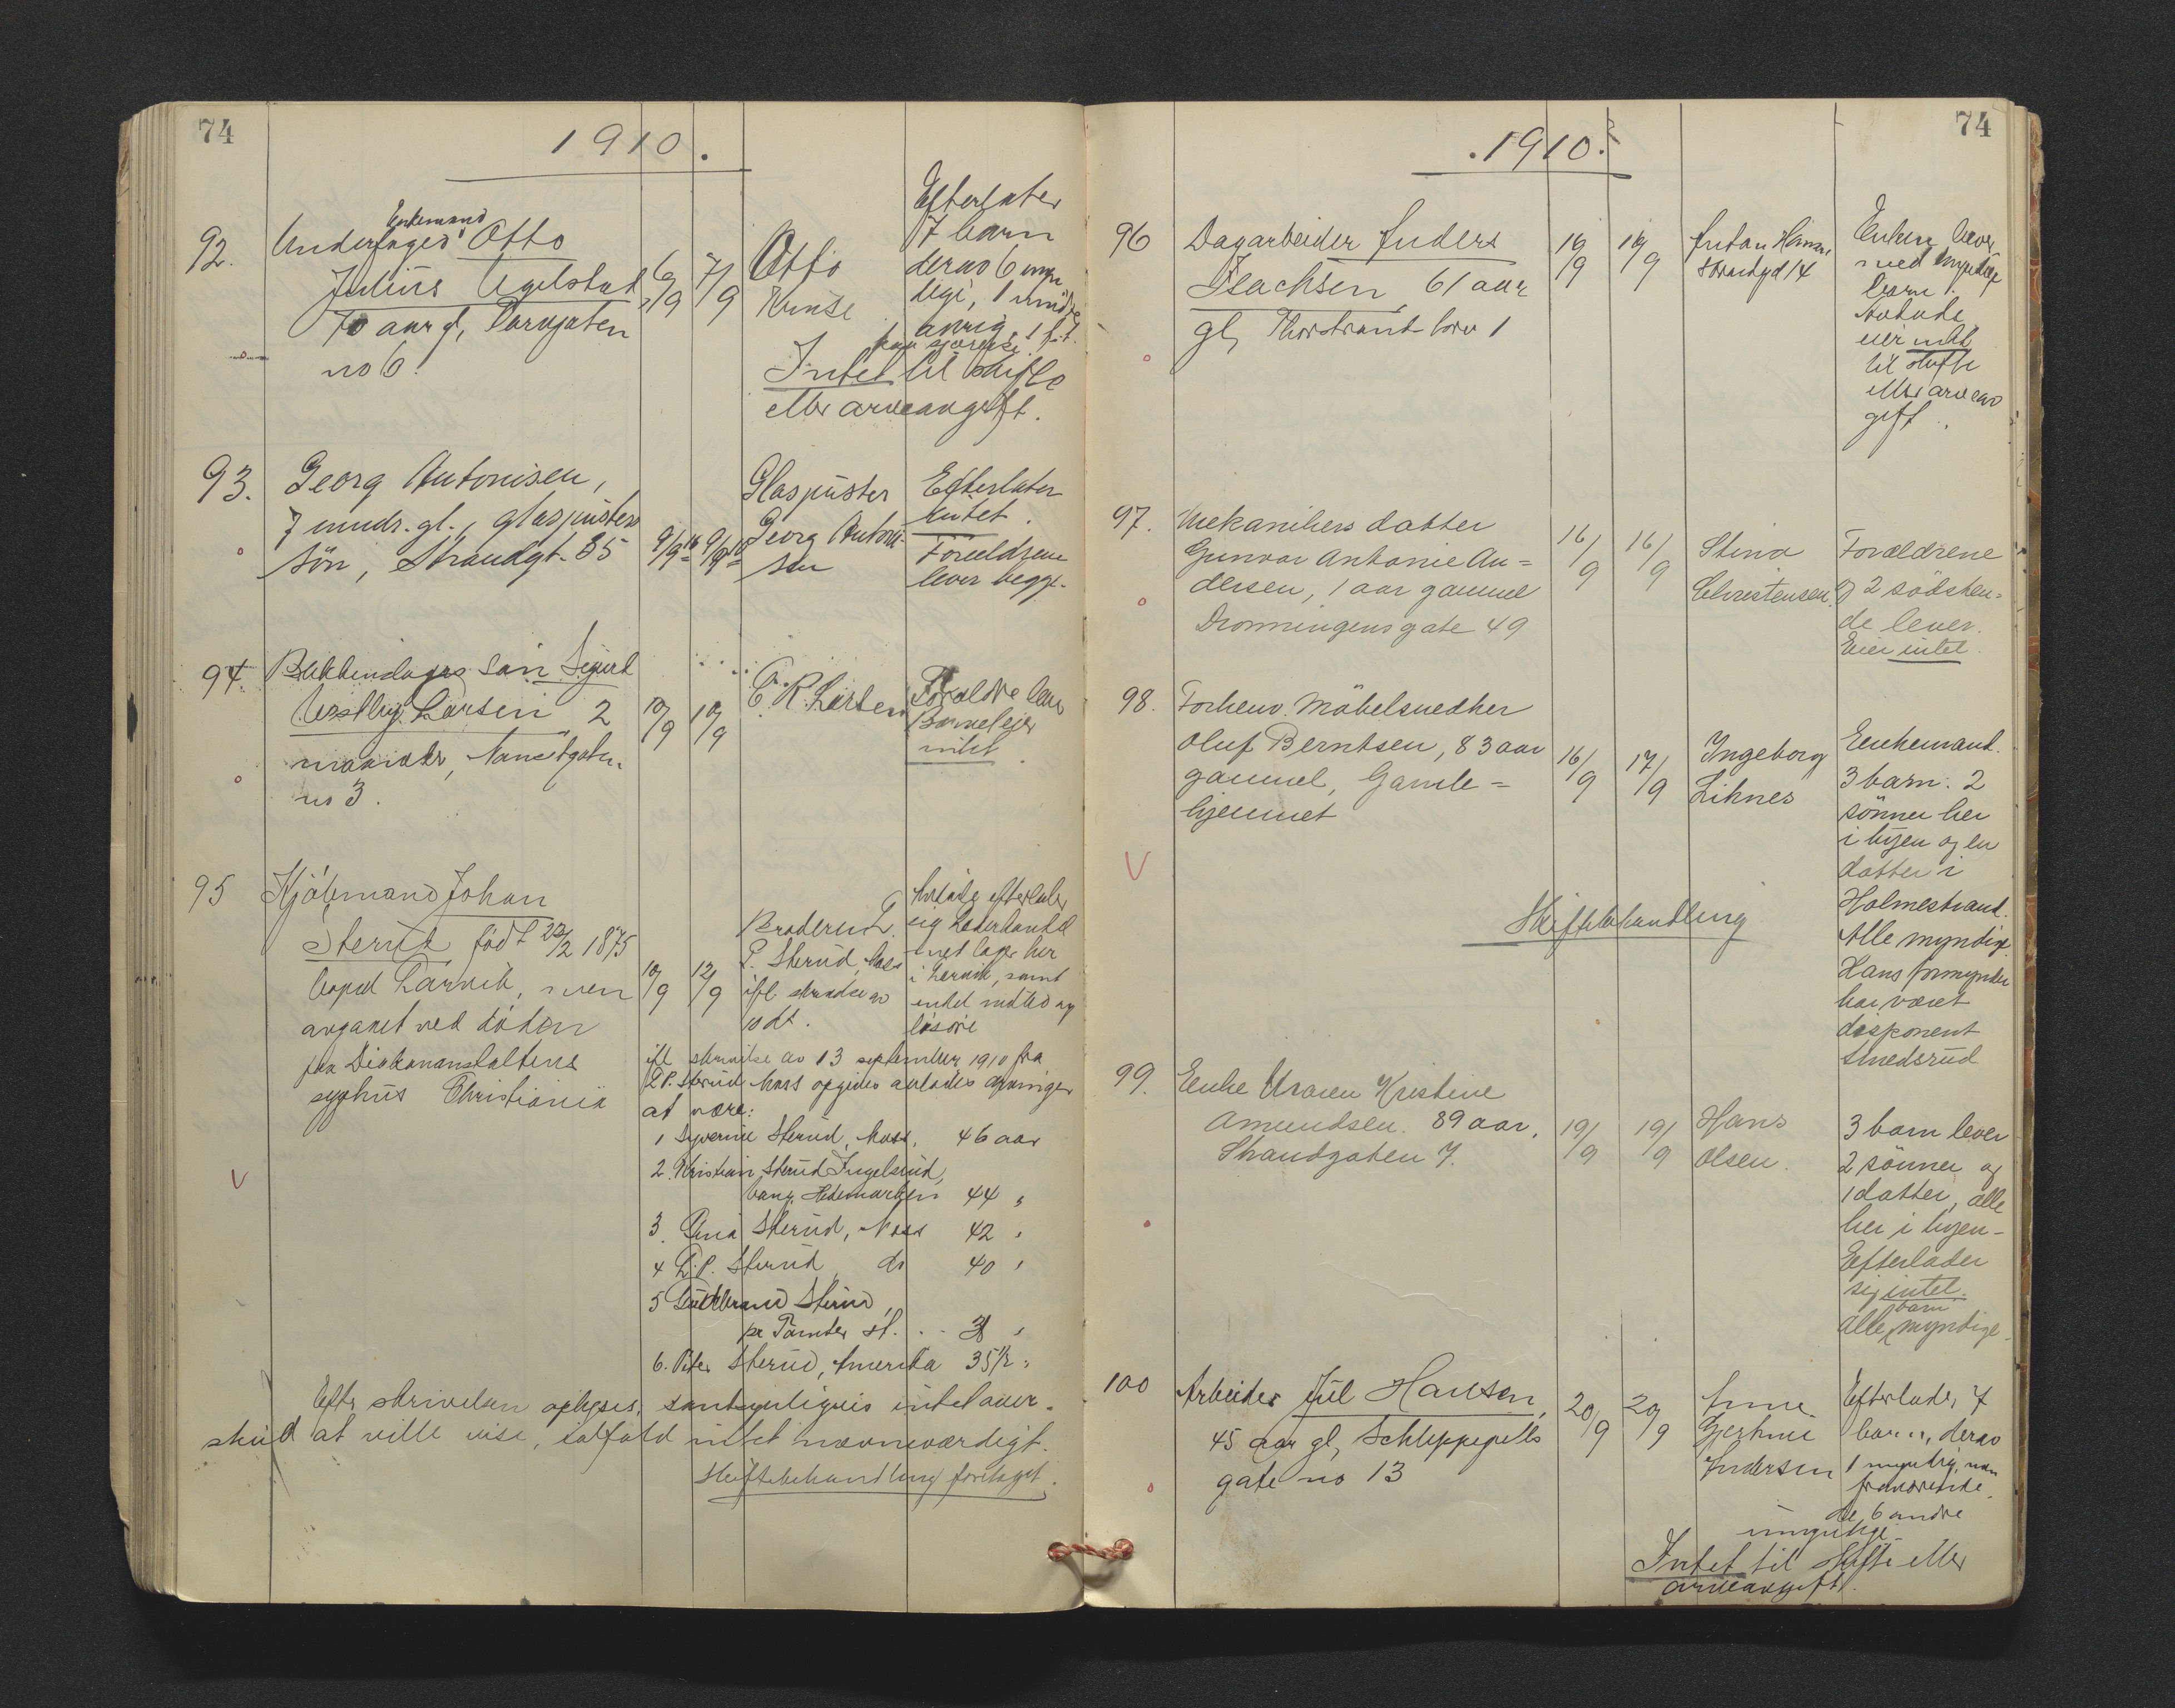 74
1910.
92.
Enkemand
Underfoged Otto
Julius Ugelstad
70 aar gl,
no 6.
6/9
7/9
Otto
Efterlater
7 barn
derav 6 myn
dige, 1 umyn
Intet til skifte
eller arveavgift.
93.
Georg Antonisen,
7 mndr. gl., glaspusters
sön, Strandgt. 35
9/9 10
9/9 10
Glaspuster
Georg Antoni-
sen
Efterlater
intet.
Forældrene
lever begge.
94.
Blikkenslagers sön Sigurd
Larsen 2
maaneder, Nansetgaten
no 3.
10/9
10/9
C. R. Larsen
Forældre lever
Barnet eier
intet.
95
Kjöbmand Johan
Sterud født 22/2 1875
bopæl Larvik, men
avgaaet ved döden
paa Diakonanstaltens
sygehus Christiania
10/9
12/9
Broderen L.
P. Sterud, Moss
ifl skrivelse av
10 dt.
Avdøde efterlater
sig Lederhandel
net lager her
i Larvik, samt
endel indbo og
løsøre
ifl skrivelse av 13 september 1910 fra
L. P. Sterud Moss opgives avdødes arvinger
at være:
1 Syverine Sterud, Moss, 46 aar
2. Kristian Sterud Ingelsrud,
Vang. Hedemarken 44 "
3. Gina Sterud, Moss 42 "
4 L. P. Sterud do 40 "
5 Guldbrand Sterud,
pr Tomter st.
6. Peter Sterud, Amerika 35 1/2 "
Efter skrivelsen oplyses, sandsynligvis intet over-
skud at ville vise, ialfald intet nævneværdigt.
Skiftebehandling foretaget.
74
1910.
96
Dagarbeider Anders
Isachsen, 61 aar
gl, Thorstrand 1
16/9
16/9
Anton
Strandgd 14
Enken lever
med myndige
barn.
Avdøde
eier intet
til skifte
eller arveav
gift.
97.
Mekanikers datter
Gunvor Antonie An=
dersen, 1 aar gammel
Dronningensgate 49
16/9
16/9
Stina
Christensen.
Forældrene
og 2 södsken=
de lever.
Eier intet.
98.
Forhenv. Möbelsnedker
Oluf Berntsen, 83 aar
gammel, Gamle=
hjemmet
16/9
17/9
Ingeborg
Liknes
Enkemand.
3 barn: 2
sönner her
i byen og en
datter i
Holmestrand.
Alle myndige
Hans formynder
har været
disponent
Smedsrud
Skiftebehandling
99.
Enke Maren Kristine
Amundsen. 89 aar,
Strandgaten 7.
19/9
19/9
Hans
Olsen.
3 barn lever
2 sönner og
1 datter, alle
her i byen-
Efterlader
sig intet.
barn
Alle myndige.
100
Arbeider Jul Hansen,
45 aar gl, Schleppegrells
gate no 13
20/9
20/9
Anne
Gjertine
Andersen
Efterlader 7
barn, derav
1 myndig, men
fraværende.
de 6 andre
umyndige
Intet til skifte eller
arveavgift.